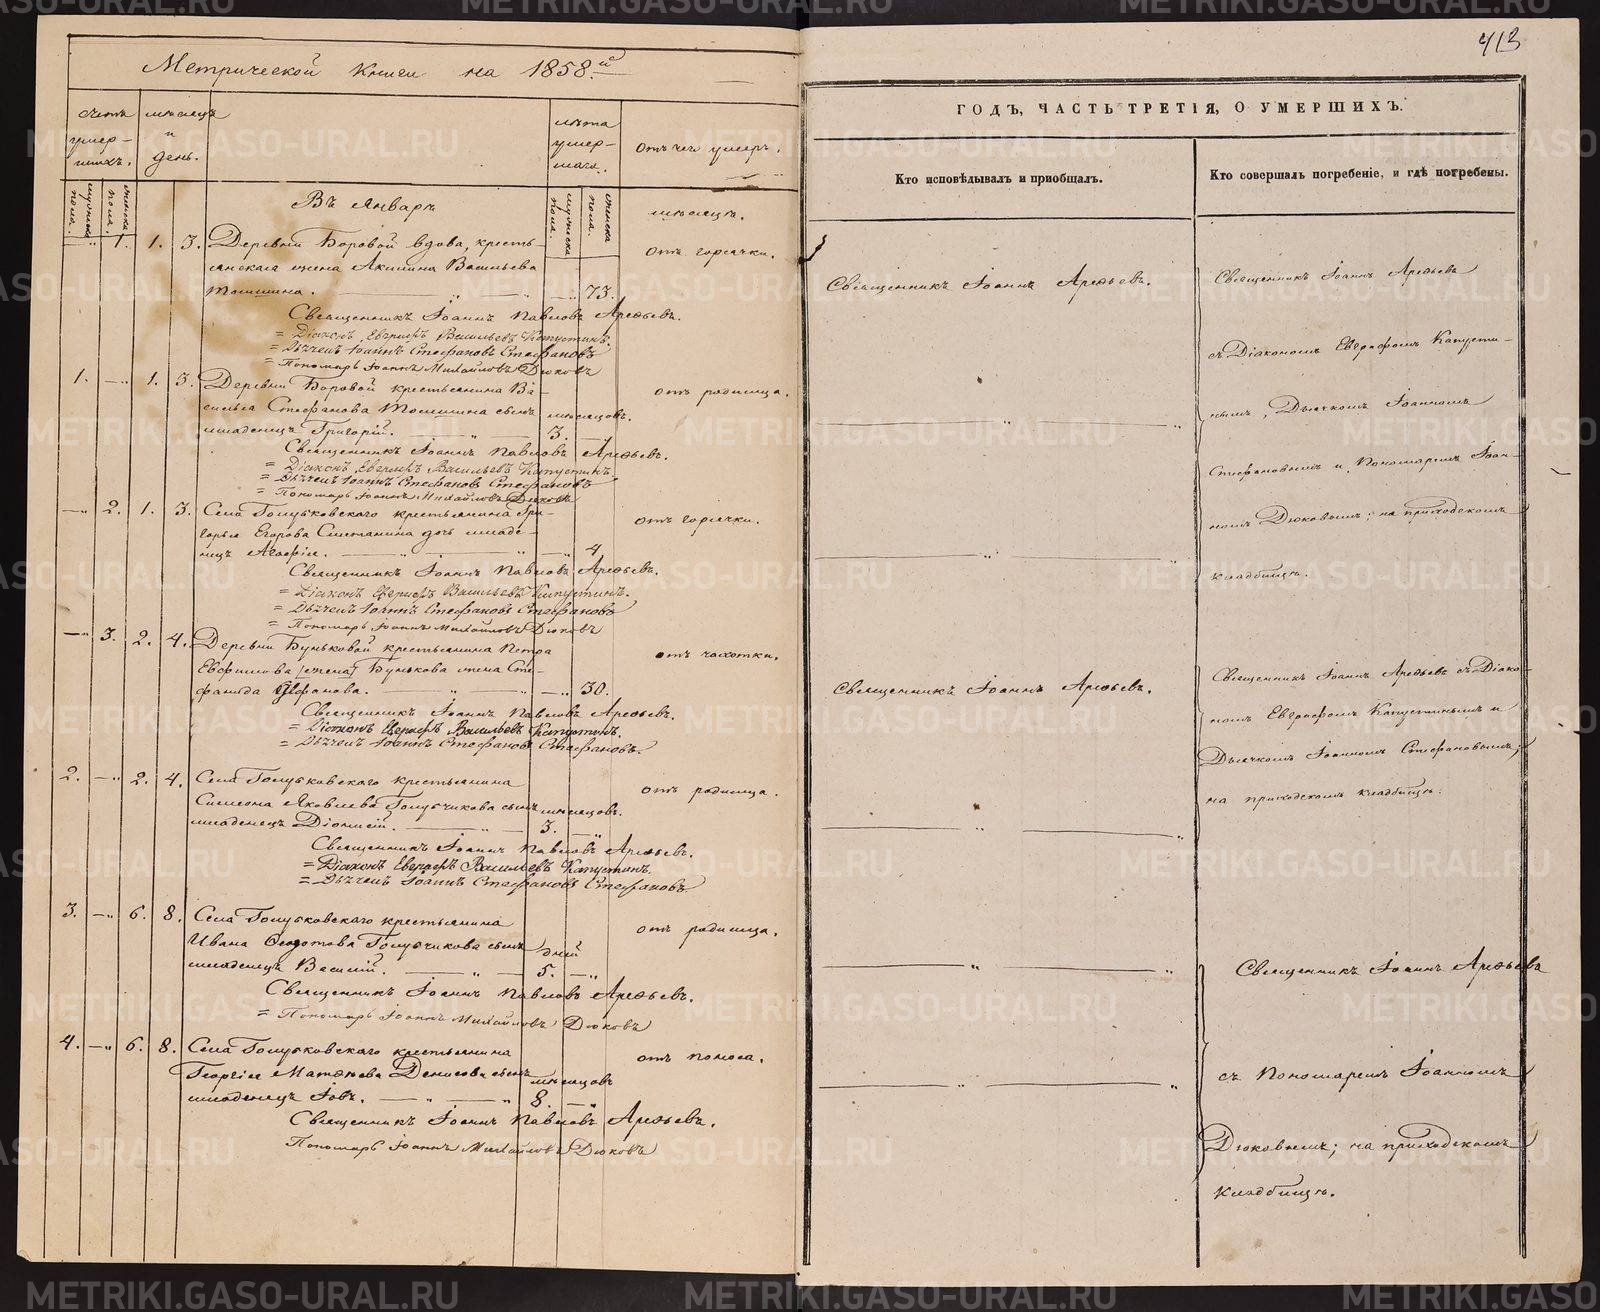 Метрической книги на 1858.й
счетъ умер-шихъ.
мѣсяцъ и день.
лѣта умер-шаго.
Отъ чего умеръ.
мужска пола.
женска пола.
мужеска пола.
женска пола.
Въ Январѣ
мѣсяцѣ.
—„ 1. 1. 3. Деревни Боровой вдова, кресть-
янскага жена Акилина Васильева
отъ горячки.
Томшина. —„— 73.
Священникъ Іоаннъ Павловъ Арефьевъ.
= Діаконъ Евграфъ Васильевъ Капустинъ.
= Дьячекъ Іоаннъ Стефановъ Стефановъ
= Пономарь Іоаннъ Михайловъ Дюковъ
1. —„ 1. 3. Деревни Боровой крестьянина Ва-
сильа Стефанова Томшина сынъ мѣсяцовъ.
отъ родимца.
младенецъ Григорій. —„— 3. —„
Священникъ Іоаннъ Павловъ Арефьевъ.
= Діаконъ Евграфъ Васильевъ Капустинъ
= Дьячекъ Іоаннъ Стефановъ Стефановъ
= Пономарь Іоаннъ Михайловъ Дюковъ
—„ 2. 1. 3. Села Голубковскаго крестьянина Гри-
горья Егорова Сметанина дочь младе-
отъ горячки.
нецъ Агафія. —„— 4
Священникъ Іоаннъ Павловъ Арефьевъ.
= Діаконъ Евграфъ Васильевъ Капустинъ.
= Дьячекъ Іоаннъ Стефановъ Стефановъ
= Пономарь Іоаннъ Михайловъ Дюковъ
—„ 3. 2. 4. Деревни Буньковой крестьянина Петра
Евфимова [жена] Бунькова жена Сте-
отъ чахотки.
фанида —„— 30.
Священникъ Іоаннъ Павловъ Арефьевъ.
= Діаконъ Евграфъ Васильевъ Капустинъ.
= Дьячекъ Іоаннъ Стефановъ Стефановъ.
2. —„ 2. 4. Села Голубковскаго крестьянина
Симеона Яковлева Голубчикова сынъ мѣсяцовъ.
отъ родимца.
младенецъ Діонисій. —„— 3. —„
Священникъ Іоаннъ Павловъ Арефьевъ.
= Діаконъ Евграфъ Васильевъ Капустинъ.
= Дьячекъ Іоаннъ Стефановъ Стефановъ.
3. —„ 6. 8. Села Голубковскаго крестьянина
Ивана Федотова Голубчикова сынъ дней
отъ родимца.
младенецъ Василій. —„— 5. —„
Священникъ Іоаннъ Павловъ Арефьевъ.
= Пономарь Іоаннъ Михайловъ Дюковъ
4. —„ 6. 8. Села Голубковскаго крестьянина
Георгія Матѳѣева Денисова сынъ мѣсяцовъ
отъ поноса.
младенецъ Іовъ. —„— 8. —„
Священникъ Іоаннъ Павловъ Арефьевъ.
Пономарь Іоаннъ Михайловъ Дюковъ
413
ГОДЪ, ЧАСТЬ ТРЕТІЯ, О УМЕРШИХЪ.
Кто исповѣдывалъ и пріобщалъ.
Кто совершалъ погребеніе, и гдѣ погребены.
Священникъ Іоаннъ Арефьевъ.
Священникъ Іоаннъ Арефьевъ
съ Діакономъ Евграфомъ Капусти-
нымъ, Дьячкомъ Іоанномъ
Стефановымъ и Пономаремъ Іоан-
номъ Дюковымъ; на приходскомъ
кладбищѣ.
Священникъ Іоаннъ Арефьевъ.
Священникъ Іоаннъ Арефьевъ съ Діако-
номъ Евграфомъ Капустинымъ и
Дьячкомъ Іоанномъ Стефановымъ;
на приходскомъ кладбищѣ.
Священникъ Іоаннъ Арефьевъ
съ Пономаремъ Іоанномъ
Дюковымъ; на приходскомъ
кладбищѣ.
METRIKI.GASO-URAL.RU